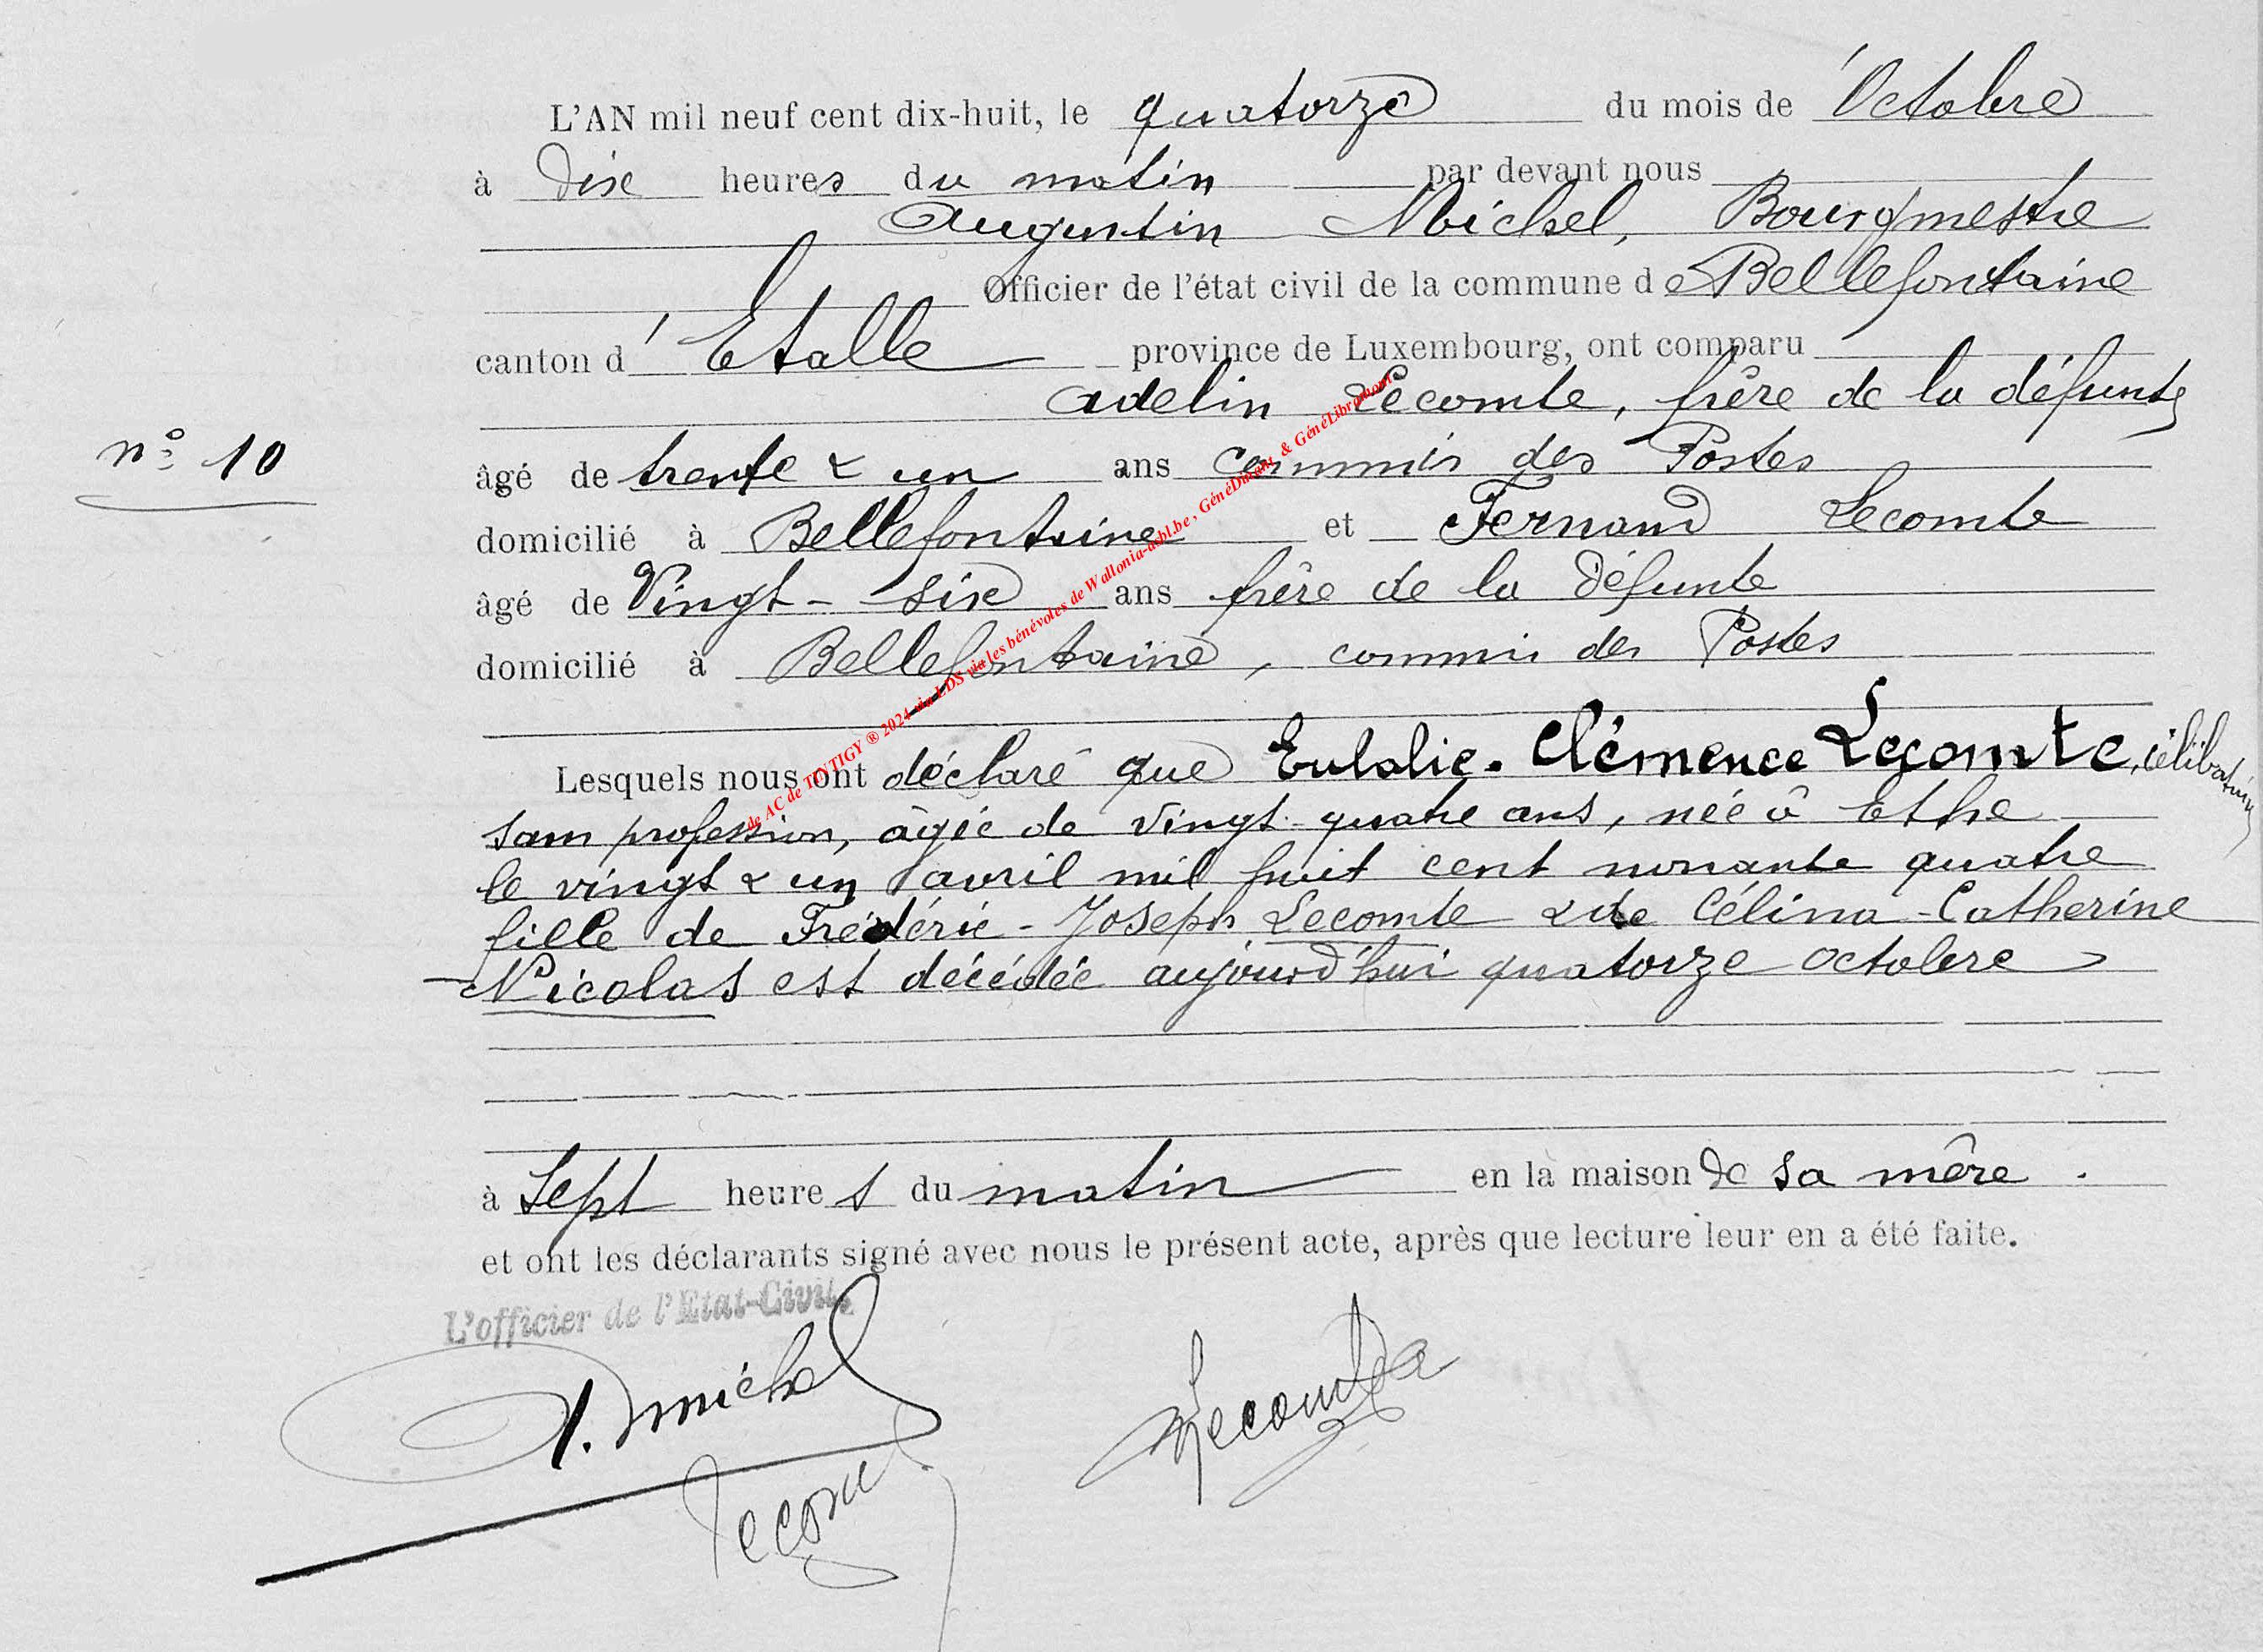 L'AN mil neuf cent dix-huit, le quatorze du mois de Octobre
à Dix heures du matin par devant nous
Augustin Michel, Bourgmestre
Officier de l'état civil de la commune de Bellefontaine
canton d'Etalle province de Luxembourg, ont comparu
Adelin Lecomte, frère de la défunte
n° 10
âgé de trente & un ans commis des Postes
domicilié à Bellefontaine et Fernand Lecomte
âgé de Vingt-six ans frère de la défunte
domicilié à Bellefontaine, commis des Postes
Lesquels nous ont déclaré que Eulalie-Clémence Lecomte, célibataire
sans profession, âgée de vingt-quatre ans, née à Ethe
le vingt & un avril mil huit cent nonante quatre
fille de Frédéric-Joseph Lecomte & de Célina-Catherine
Nicolas est décédée aujourd'hui quatorze octobre
à Sept heures du matin en la maison de sa mère.
et ont les déclarants signé avec nous le présent acte, après que lecture leur en a été faite.
L'officier de l'Etat-Civil,
A. Michel
Lecomte
Lecomte
de AC de TINTIGY ® 2024 via LDS via les bénévoles de Wallonia-asbl.be, GénéDinant & GénéLibramont